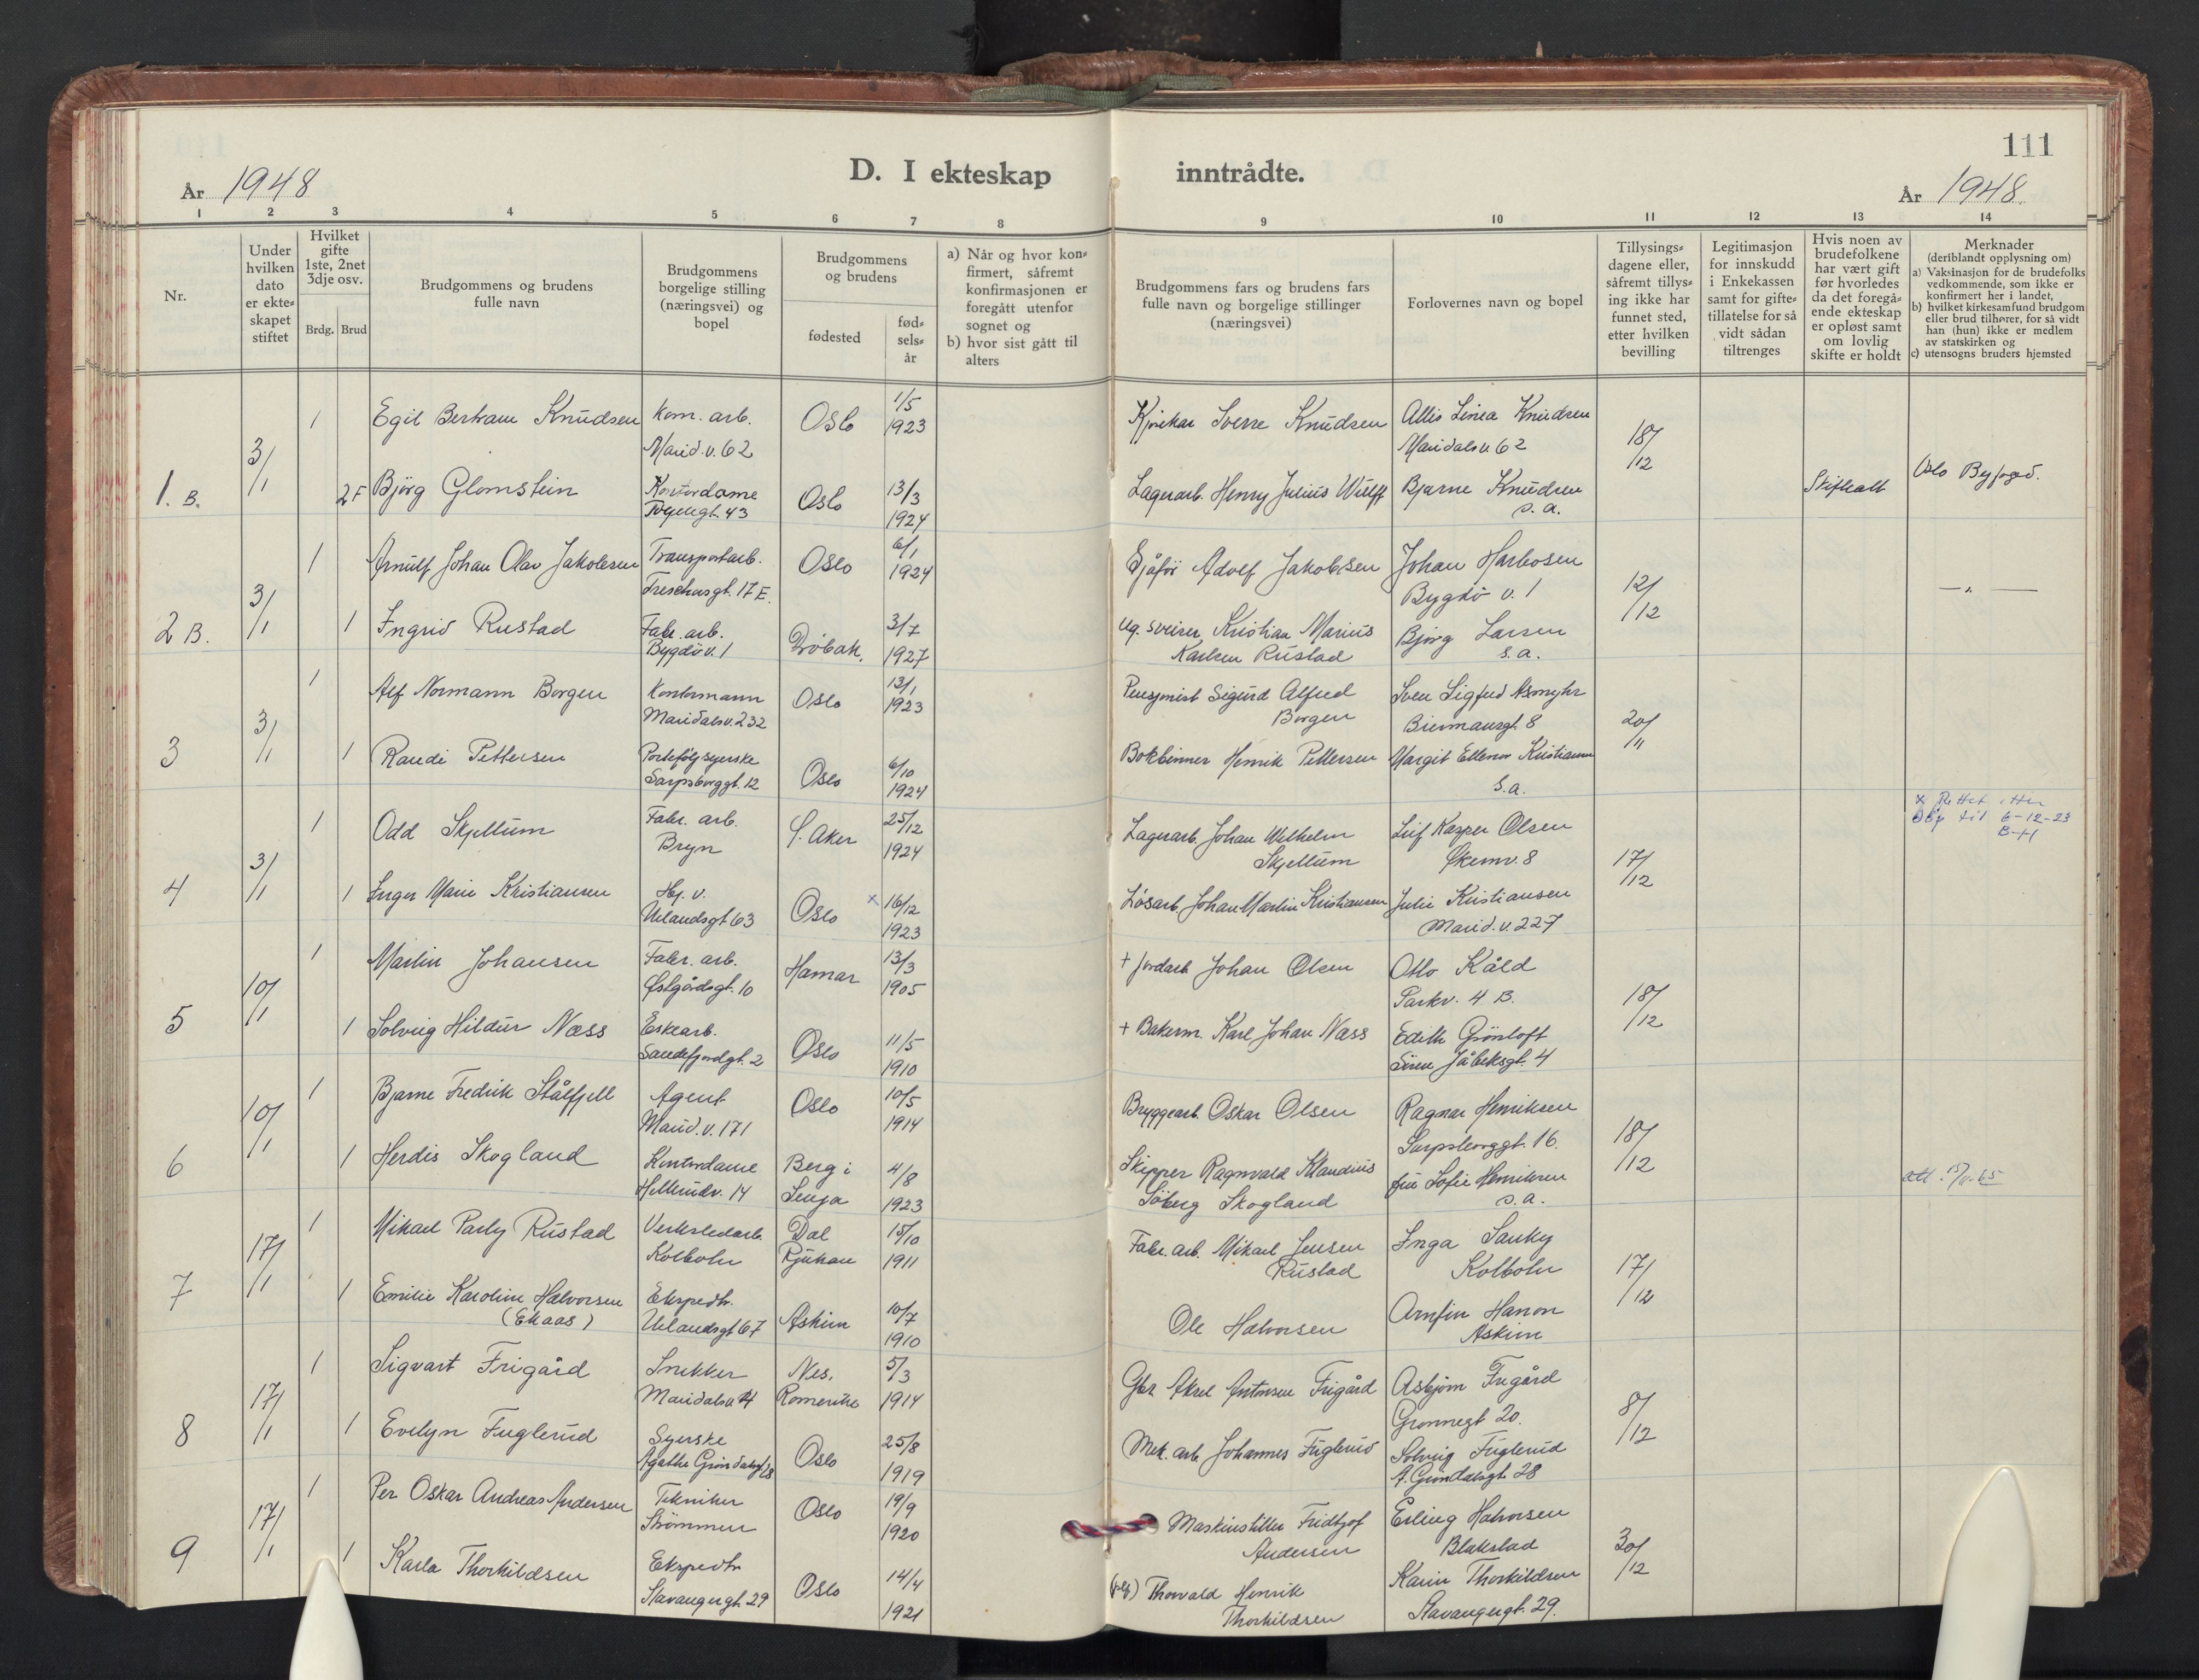 111
År 1948
D. I ekteskap inntrådte.
År 1948
1 2 3 4 5 6 7 8 9 10 11 12 13 14
Nr.
Under hvilken dato er ekte= skapet stiftet
Hvilket gifte 1ste, 2net 3dje osv.
Brdg. Brud
Brudgommens og brudens fulle navn
Brudgommens borgelige stilling (næringsvei) og bopel
Brudgommens og brudens
fødested
fød= sels= år
a) Når og hvor kon= firmert, såfremt konfirmasjonen er foregått utenfor sognet og
b) hvor sist gått til alters
Brudgommens fars og brudens fars fulle navn og borgelige stillinger (næringsvei)
Forlovernes navn og bopel
Tillysings= dagene eller, såfremt tillys= ing ikke har funnet sted, etter hvilken bevilling
Legitimasjon for innskudd i Enkekassen samt for gifte= tillatelse for så vidt sådan tiltrenges
Hvis noen av brudefolkene har vært gift før hvorledes da det foregå= ende ekteskap er opløst samt om lovlig skifte er holdt
Merknader
(deriblandt opplysning om)
a) Vaksinasjon for de brudefolks vedkommende, som ikke er konfirmert her i landet,
b) hvilket kirkesamfund brudgom eller brud tilhører, for så vidt han (hun) ikke er medlem av statskirken og
c) utensogns bruders hjemsted
1. B. 3/1
1 Egil Bertram Knudsen Kom. arb. Marid.v. 62 Oslo 1/5 1923 Sverre Knudsen Allis Linea Knudsen Maridalsv. 62 18/12
2 F Björg Glomstein Kontordame 43 Oslo 13/3 1924 Lagerarb. Henry Julius Wulff Bjarne Knudsen s.a. Skilt Oslo Byfoged.
2 B. 3/1
1 Arnulf Johan Olav Jakobsen Transportarb. Treschowsgt. 17 E. Oslo 6/1 1924 Sjåfør Adolf Jakobsen Johan Harbosen Bygdö v. 1 12/12 — „ —
1 Ingrid Rustad Fabr. arb. Bygdöv. 1 Dröbak. 3/7 1927 Kristian Marius Karlsen Rustad Bjørg Larsen s.a.
3 3/1
1 Alf Normann Borgen Kontormann Maridalsv. 232 Oslo 13/1 1923 Pensjonist Sigurd Alfred Borgen Sven Sigfred Biermannsgt. 8 20/11
1 Randi Pettersen Portefölj syerske Sarpsborggt. 12 Oslo 6/10 1924 Bokbinner Henrik Pettersen Margit Kristiansen s.a.
4 3/1
1 Odd Skjellum Fabr. arb. Bryn Ö. Aker 25/12 1924 Lagerarb. Johan Wilhelm Skjellum Leif Kasper Olsen Økernv. 8 17/12 x Rettet etter til 6-12-23 B-H
1 Inger Marie Kristiansen Hj. v. Uelandsgt 63 Oslo x 16/12 1923 Løsarb. Johan Martin Kristiansen Julie Kristiansen Marid.v. 227
5 10/1
1 Martin Johansen Fabr. arb. Østgårdsgt. 10 Hamar 13/3 1905 + Jordarb. Johan Olsen Otto Kåld Parkv. 4 B. 18/12
1 Solveig Hildur Næss Eskearb. Sandefjordgt. 2 Oslo 11/5 1910 + Bakerm. Karl Johan Næss Edith Grönloft Sören Jåbeksgt. 4
6 10/1
1 Bjarne Fredrik Stålfjell Agent Marid.v. 171 Oslo 10/5 1914 Bryggearb. Oskar Olsen Ragnar Henriksen Sarpsborggt. 16. 18/12
1 Herdis Skogland Kontordame Hellerudv. 14 Berg i Senja 4/8 1923 Skipper Ragnvald Klaudius Söberg Skogland fru Sofie Henriksen s.a. att. 15/11-65
7 17/1
1 Mikael Parly Rustad Verkstedarb. Kolbotn Dal Rjukan 15/10 1911 Fabr. arb. Mikael Jensen Rustad Inga Sauky Kolbotn 17/12
1 Emilie Karoline Halvorsen (Ekaas) Ekspedtr. Uelandsgt 67 Askim 10/7 1910 Ole Halvorsen Arnfin Hanson Askim
8 17/1
1 Sigvart Frigård Snekker Maridalsv. Nes, Romerike 5/3 1914 Gbr Aksel Antonsen Frigård Asbjørn Frigård Grønnegt 20. 8/12
1 Evelyn Fuglerud Syerske Agathe Gröndalsgt 28 Oslo 25/8 1919 Mek. arb. Johannes Fuglerud Solveig Fuglerud A. Gröndalsgt. 28
9 17/1
1 Per Oskar Andreas Andersen Tekniker Strömmen Oslo 19/9 1920 Maskinstiller Fridtjof Andersen Erling Halvorsen Blakstad 30/12
1 Karla Thorkildsen Ekspedtr Stavangergt. 29 Oslo 14/4 1921 Thorvald Henrik Thorkildsen Karin Thorkildsen Stavangergt. 29.